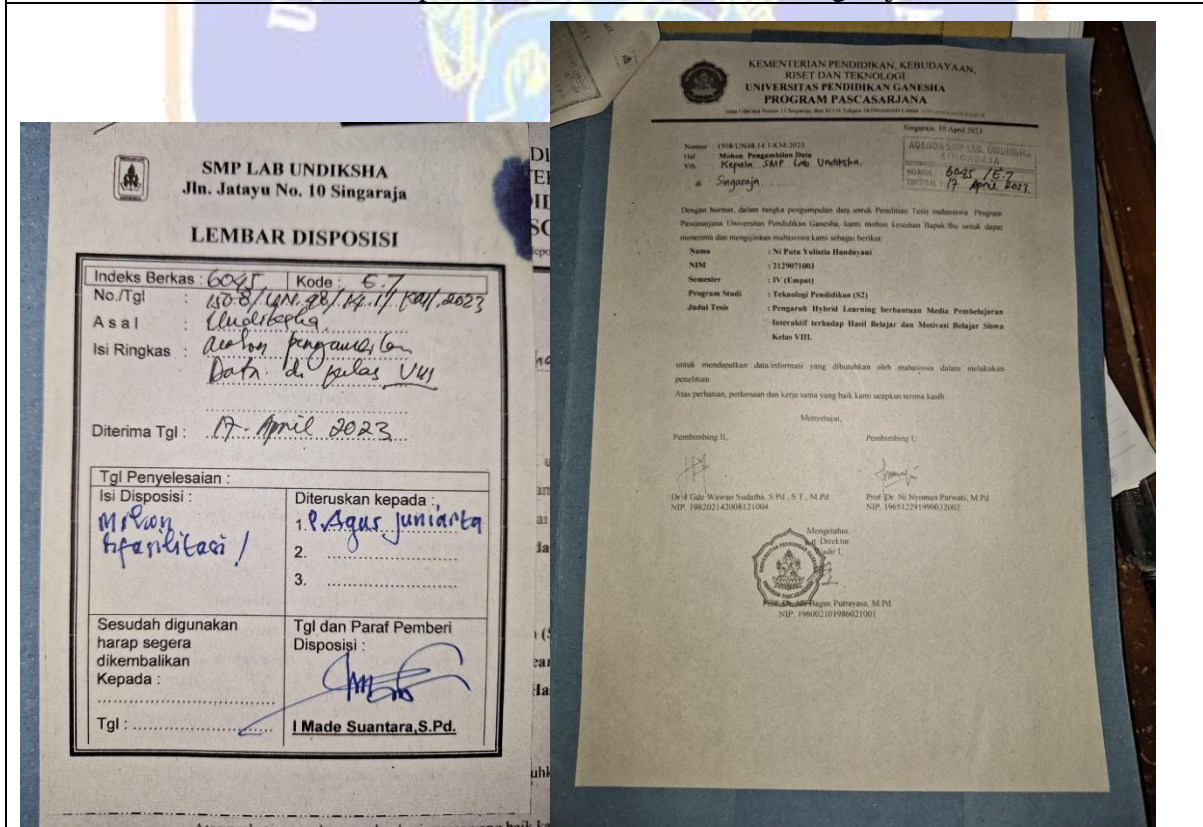 SMP LAB UNDIKSHA
Jln. Jatayu No. 10 Singaraja
LEMBAR DISPOSISI
Indeks Berkas : 6045 Kode : E.7
No./Tgl :
Asal : Undiksha
Isi Ringkas : Mohon pengambilan
Data di kelas VIII
Diterima Tgl : 17 - April 2023
Tgl Penyelesaian :
Isi Disposisi :
Mohon
difasilitasi /
Diteruskan kepada :
1. P. Agus Juniarta
2.
3.
Sesudah digunakan
harap segera
dikembalikan
Kepada :
Tgl :
Tgl dan Paraf Pemberi
Disposisi :
I Made Suantara,S.Pd.
KEMENTERIAN PENDIDIKAN, KEBUDAYAAN,
RISET DAN TEKNOLOGI
UNIVERSITAS PENDIDIKAN GANESHA
PROGRAM PASCASARJANA
Singaraja, 10 April 2023
Nomor : 1508/UN48.14.1/KM/2023
Hal : Mohon Pengambilan Data
Yth. Kepala SMP Lab Undiksha.
di Singaraja
AGENDA SMP LAB. UNDIKSHA
SINGARAJA
NOMOR : 6045 / E.7
17 April 2023.
Dengan hormat, dalam rangka pengumpulan data untuk Penelitian Tesis mahasiswa Program
Pascasarjana Universitas Pendidikan Ganesha, kami mohon kesedian Bapak/Ibu untuk dapat
menerima dan mengijinkan mahasiswa kami sebagai berikut:
Nama : Ni Putu Yulistia Handayani
NIM : 2129071003
Semester : IV (Empat)
Program Studi : Teknologi Pendidikan (S2)
Judul Tesis : Pengaruh Hybrid Learning berbantuan Media Pembelajaran
Interaktif terhadap Hasil Belajar dan Motivasi Belajar Siswa
Kelas VIII.
untuk mendapatkan data/informasi yang dibutuhkan oleh mahasiswa dalam melakukan
penelitian.
Atas perhatian, perkenaan dan kerja sama yang baik kami ucapkan terima kasih.
Menyetujui,
Pembimbing II, Pembimbing I,
Dr. I Gde Wawan Sudatha, S.Pd., S.T., M.Pd. Prof. Dr. Ni Nyoman Parwati, M.Pd
NIP. 198202142008121004 NIP. 196512291990032002
Mengetahui,
Direktur
Wadir I,
Prof. Dr. Ida Bagus Putrayasa, M.Pd
NIP. 196002101986021001